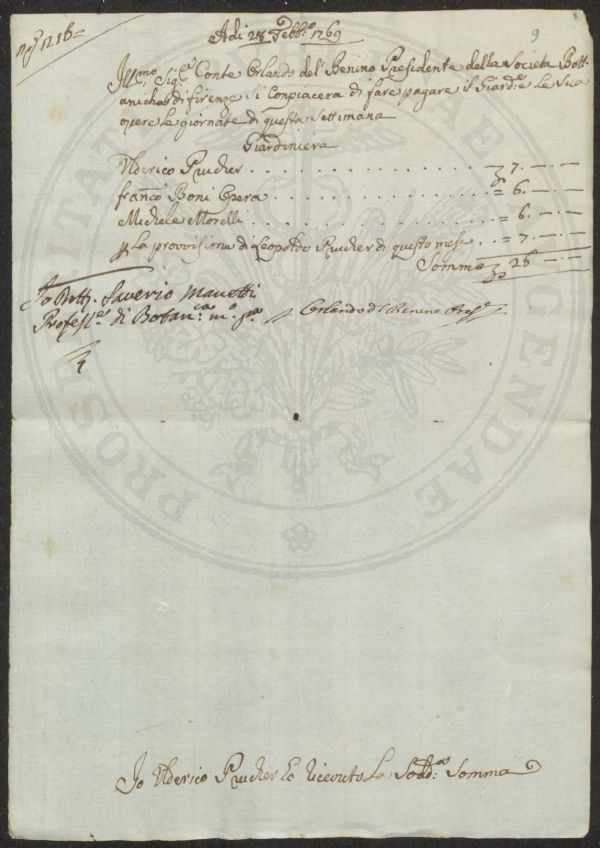 9
Adi 28 Febb:o 1769
Ill:mo Sig:e Conte Orlando del Benino Presidente della Societa Bott-
anicha di firenze Si Conpiacera di fare pagare il Giard:e Le Sue
opere Le giornate di questa Settimana
Giardiniere
Ulderico Prucher . . . . . . . . . . 7. — —
Franc:o Boni Opera . . . . . . . . . . = 6. — —
Michele Morelli . . . . . . . . . . = 6. — —
La provvisione di Leopoldo Prucher di questo mese . . = 7. — —
Somma 26 — —
Io Dott:. Saverio Manetti
Profess:e di Botan:ca m:o p:a Orlando del Benino Pres:e
4
Io Ulderico Prucher ho ricevuto La Sodd:a Somma
PROSPERITATI AUGENDAE